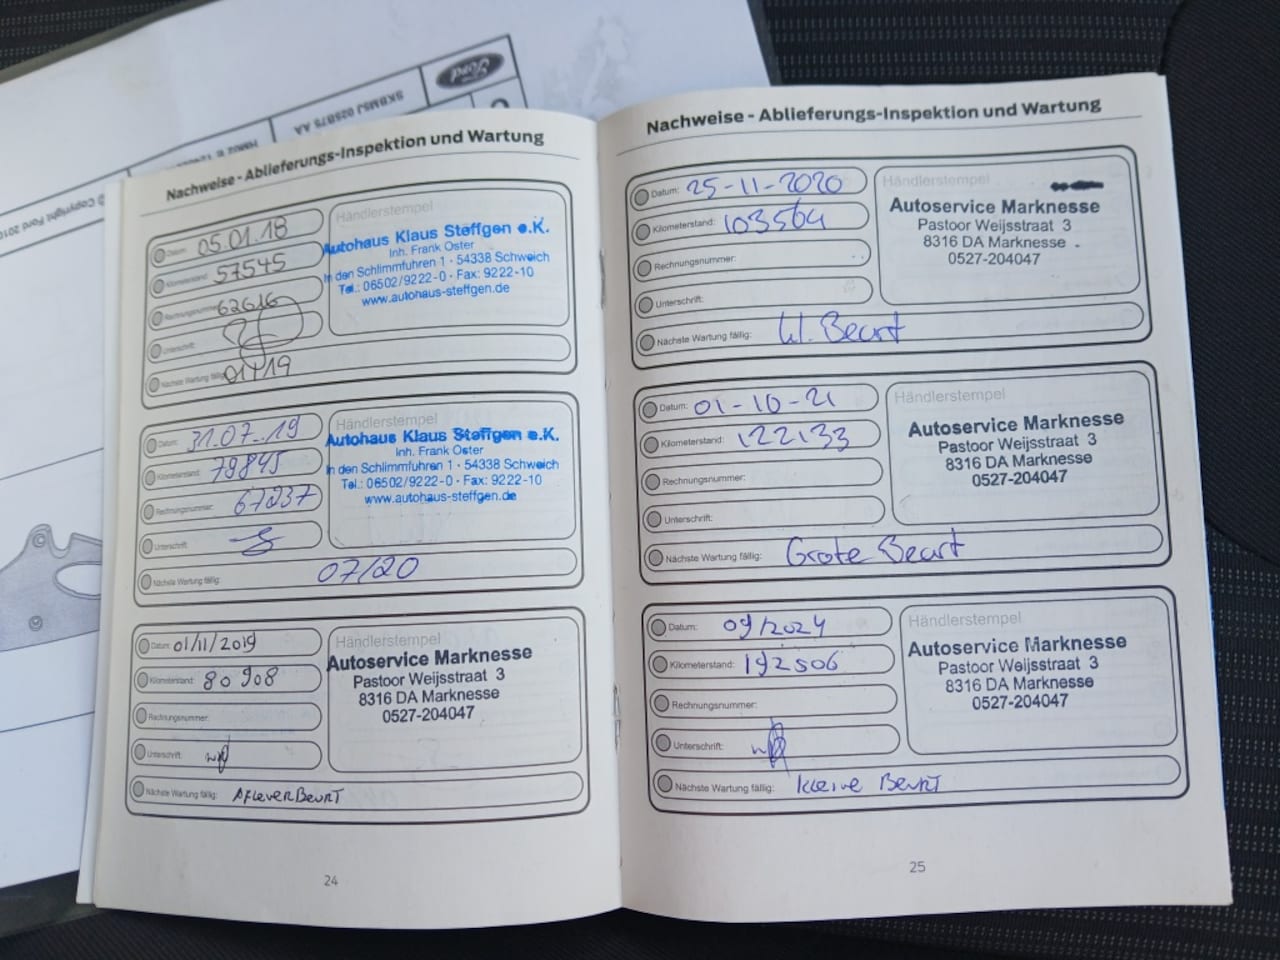 Ford
SKBMSJ 025B75 AA
© Copyright Ford 2010
Nachweise - Ablieferungs-Inspektion und Wartung
Datum: 05.01.18
Kilometerstand: 57545
Rechnungsnummer: 62616
Unterschrift:
Nächste Wartung fällig: 01/19
Händlerstempel
Autohaus Klaus Steffgen e.K.
Inh. Frank Oster
In den Schlimmfuhren 1 · 54338 Schweich
Tel.: 06502/9222-0 · Fax: 9222-10
www.autohaus-steffgen.de
Datum: 31.07.19
Kilometerstand: 79845
Rechnungsnummer: 67237
Unterschrift:
Nächste Wartung fällig: 07/20
Händlerstempel
Autohaus Klaus Steffgen e.K.
Inh. Frank Oster
In den Schlimmfuhren 1 · 54338 Schweich
Tel.: 06502/9222-0 · Fax: 9222-10
www.autohaus-steffgen.de
Datum: 01/11/2019
Kilometerstand: 80908
Rechnungsnummer:
Unterschrift:
Nächste Wartung fällig: AfleverBeurt
Händlerstempel
Autoservice Marknesse
Pastoor Weijsstraat 3
8316 DA Marknesse
0527-204047
24
Nachweise - Ablieferungs-Inspektion und Wartung
Datum: 25-11-2020
Kilometerstand: 103564
Rechnungsnummer:
Unterschrift:
Nächste Wartung fällig: kl. Beurt
Händlerstempel
Autoservice Marknesse
Pastoor Weijsstraat 3
8316 DA Marknesse
0527-204047
Datum: 01-10-21
Kilometerstand: 122133
Rechnungsnummer:
Unterschrift:
Nächste Wartung fällig: Grote Beurt
Händlerstempel
Autoservice Marknesse
Pastoor Weijsstraat 3
8316 DA Marknesse
0527-204047
Datum: 09/2024
Kilometerstand: 192506
Rechnungsnummer:
Unterschrift:
Nächste Wartung fällig: kleine Beurt
Händlerstempel
Autoservice Marknesse
Pastoor Weijsstraat 3
8316 DA Marknesse
0527-204047
25